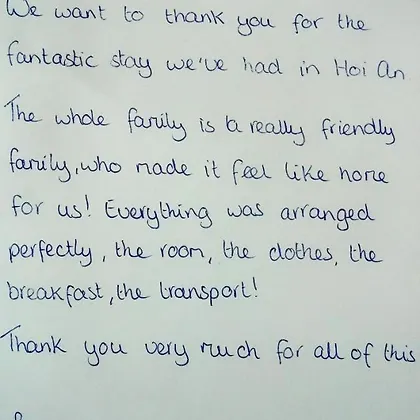 We want to thank you for the
fantastic stay we've had in Hoi An
The whole family is a really friendly
family, who made it feel like home
for us! Everything was arranged
perfectly, the room, the clothes, the
breakfast, the transport!
Thank you very much for all of this